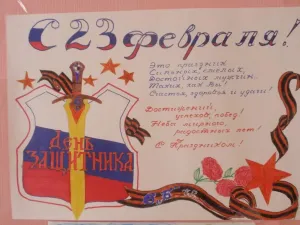 С 23 февраля!
Это праздник
Сильных, смелых,
Достойных мужчин.
Таких, как Вы!
Счастья, здоровья и удачи!
Достижений,
успехов, побед!
Небо мирного,
радостных лет!
С Праздником!
ДЕНЬ
ЗАЩИТНИКА